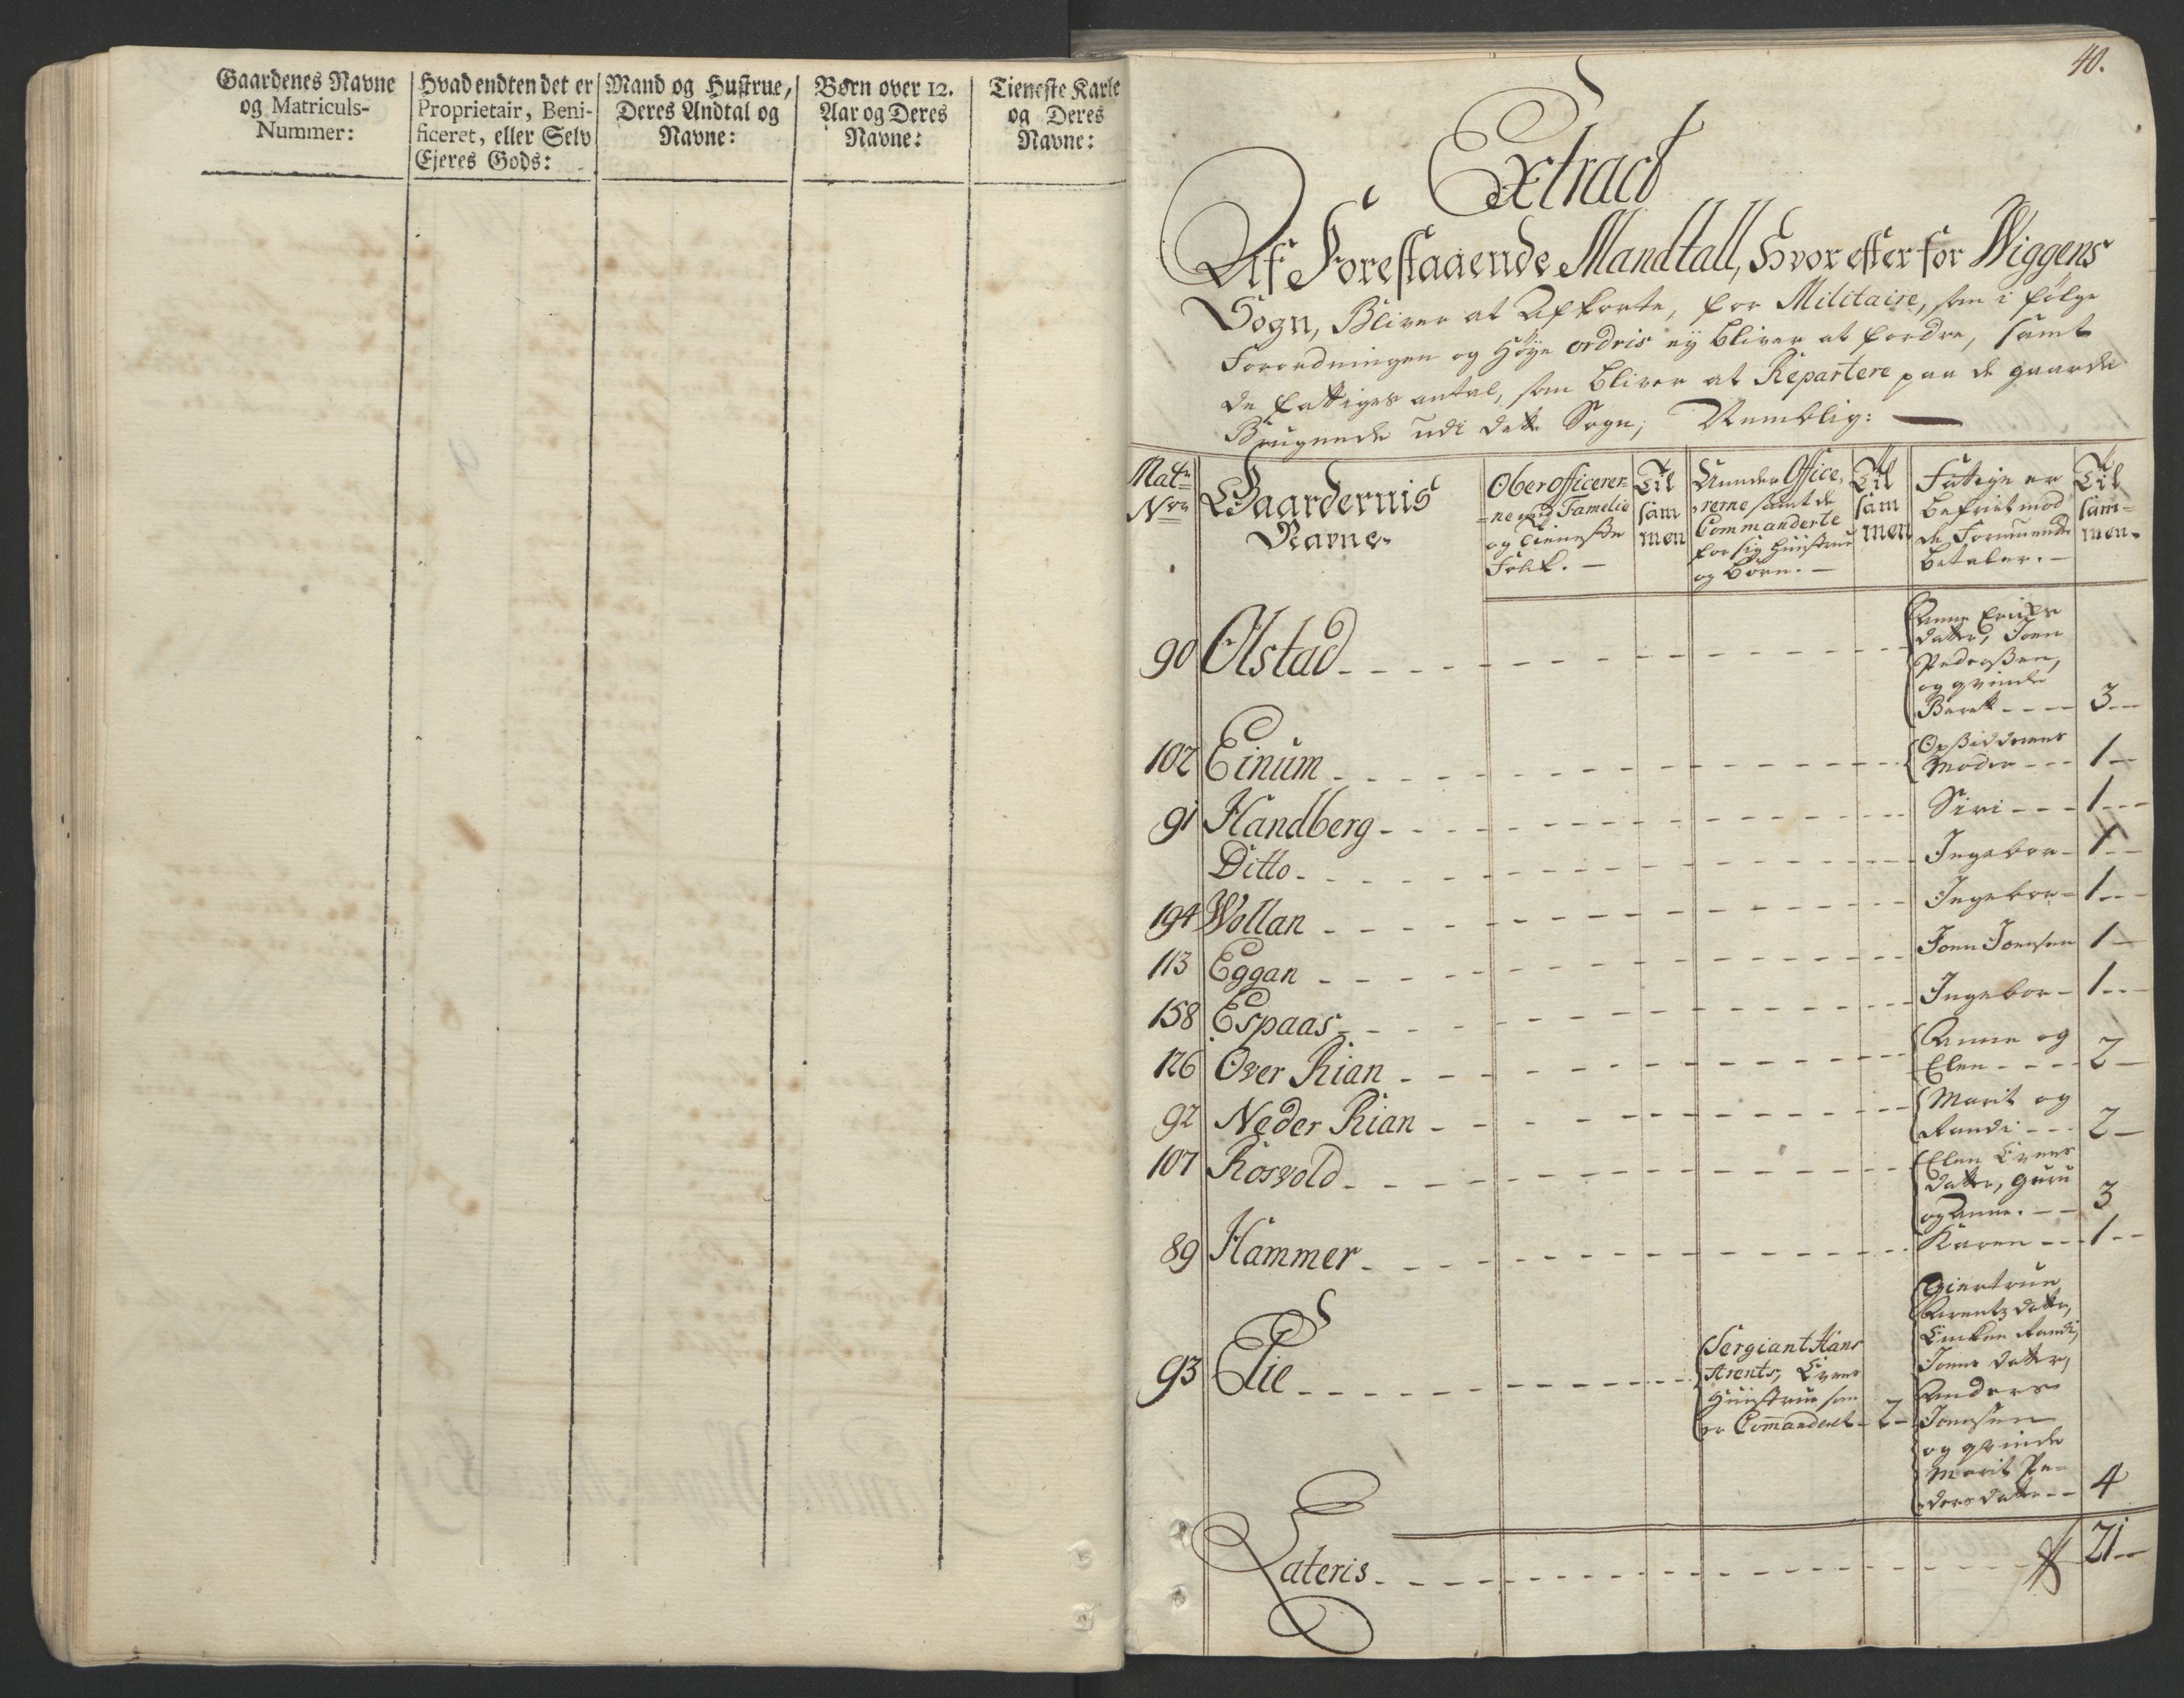 Gaardenes Navne
og Matriculs-
Nummer:
Hvad endten det er
Proprietair, Beni-
ficeret, eller Selv
Ejeres Gods:
Mand og Hustrue,
Deres Andtal og
Navne:
Børn over 12.
Aar og Deres
Navne:
Tieneste Karle
og Deres
Navne:
40.
Extract
Af Forestaaende Mandtall, Hvor efter for Wiggens
Sogn, Bliver at Afkorte, for Militaire, som i følge
Forordningen og Høye ordris ey bliver at fordre, samt
de fattiges antal, som bliver at Repartere paa de gaarde
Brugende udi dette Sogn; Nemblig:
Matr
Nro
Gaardernis
Navne
Ober officerer-
ne med Familie
og Tieneste
Folk.
Til
sam
men
Under Office,
rerne samt de
Commanderte
for sig Hüstrue
og Børn.
Til
sam
men
Fattige er
befriet mod
de Formuende
betaler.
Til
sam=
men.
90 Olstad - - - Anne Erichs
datter, Joen
Pederßen,
og qvinde
Berett - - - 3 -
102 Einum - - - Opsidderens
Moder - - - 1 -
91 Handberg - - - Siri - - - 1 - -
Ditto - - - Ingebor - 1 - -
194 Wollan - - - Ingebor - 1 - -
113 Eggan - - - Joen Joensen 1 -
158 Espaas - - - Ingebor - 1 - -
126 Over Rian - - - Anne og
Elen - - - 2 -
92 Neder Rian - - - Marit og
Randi - - - 2 -
107 Rosvold - - - Elen Evens
datter, Guru
og Anne. - - 3
89 Hammer - - - Karen - - - 1 - -
93 Elie - - - Sergiant Hans
Arents, Evens
Hüistrue som
er Commandert - 2 -
Giertrue
Arentz datter,
Enken Randi,
Joens datter,
Anders
Joensen
og qvinde
Marit Pe-
ders datter - - 4
Lateris - - - 21 - -